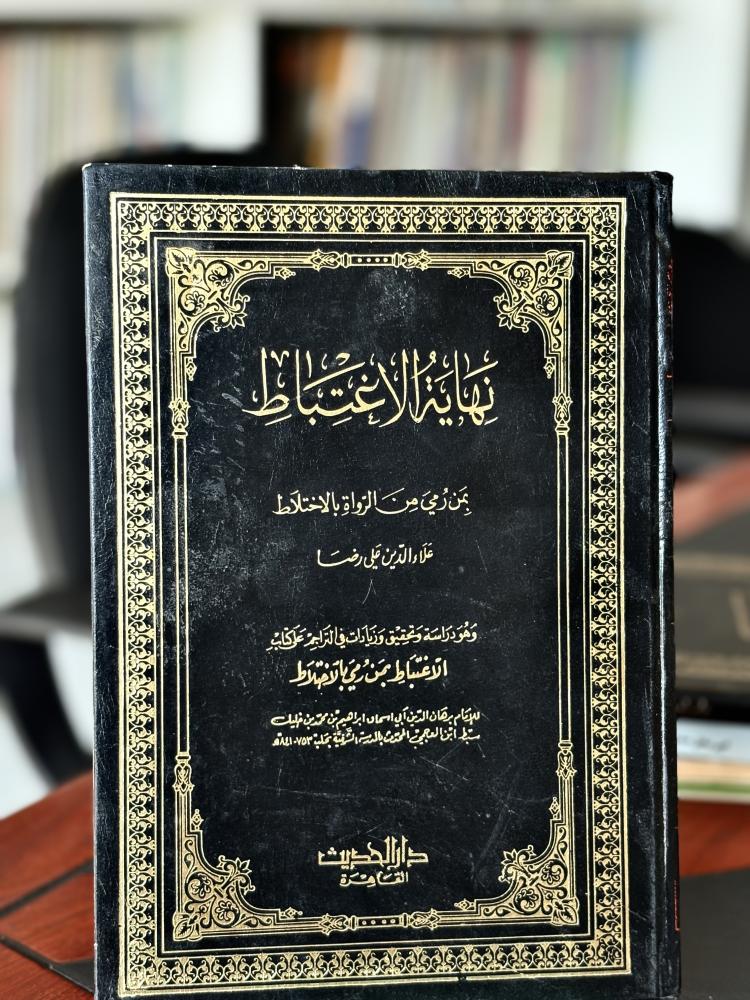 نهاية الاغتباط
بمن رمي من الرواة بالاختلاط
علاء الدين علي رضا
وهو دراسة وتحقيق وزيادات في التراجم على كتاب
الاغتباط بمن رمي بالاختلاط
للإمام برهان الدين أبي اسحاق ابراهيم بن محمد بن خليل
سبط ابن العجمي المحدث بالمدرسة الشرفية بحلب ٧٥٣-٨٤١هـ
دار الحديث
القاهرة